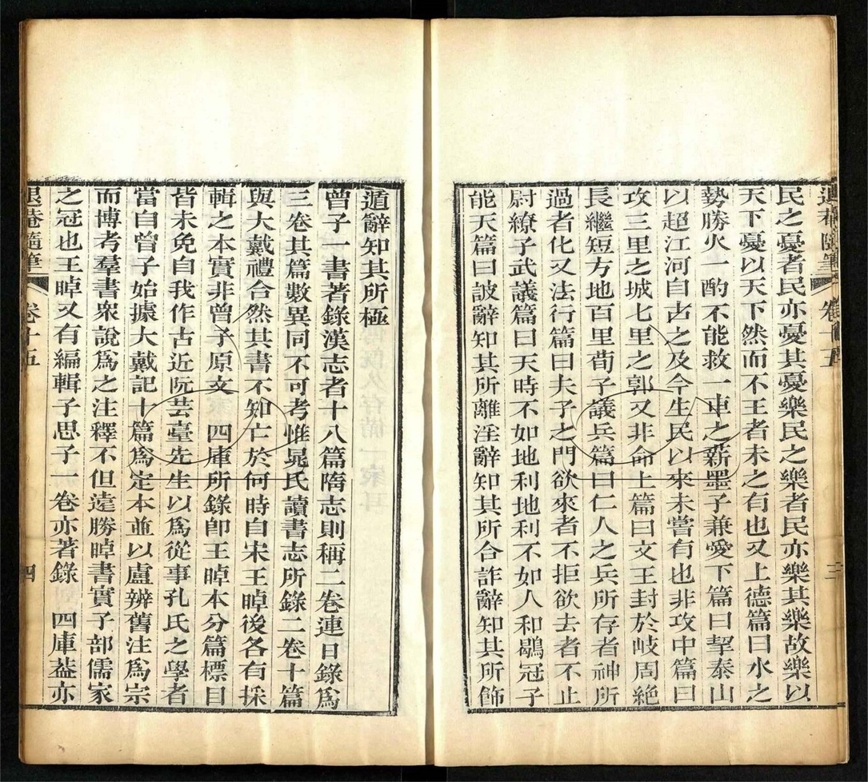 退菴隨筆 卷十五 三
民之憂者民亦憂其憂樂民之樂者民亦樂其樂故樂以
天下憂以天下然而不王者未之有也又上德篇曰水之
勢勝火一酌不能救一車之薪墨子兼愛下篇曰挈泰山
以超江河自古之及今生民以來未嘗有也非攻中篇曰
攻三里之城七里之郭又非命上篇曰文王封於岐周絶
長繼短方地百里荀子議兵篇曰仁人之兵所存者神所
過者化又法行篇曰夫子之門欲來者不拒欲去者不止
尉繚子武議篇曰天時不如地利地利不如人和鶡冠子
能天篇曰詖辭知其所離淫辭知其所合詐辭知其所飾
遁辭知其所極
曾子一書著錄漢志者十八篇隋志則稱二卷連目錄爲
三卷其篇數異同不可考惟晁氏讀書志所錄二卷十篇
與大戴禮合然其書不知亡於何時自宋王晫後各有採
輯之本實非曾子原文 四庫所錄卽王晫本分篇標目
皆未免自我作古近阮芸臺先生以爲從事孔氏之學者
當自曾子始據大戴記十篇爲定本並以盧辨舊注爲宗
而博考羣書衆說爲之注釋不但遠勝晫書實子部儒家
之冠也王晫又有編輯子思子一卷亦著錄 四庫葢亦
退菴隨筆 卷十五 四